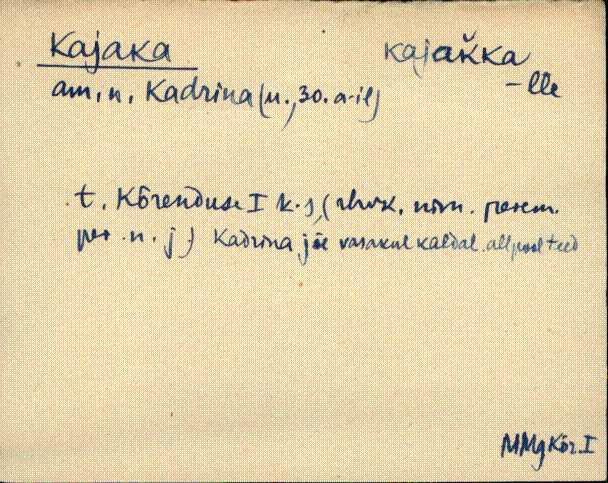 Kajaka kajaǩka
-lle
am. n. Kadrina (u. 30. a-il)
t. Kõrenduse I k. s, (rhvk. nim. perem.
per. n. j) Kadrina jõe vasakul kaldal. allpool teed
MMg Kõr. I